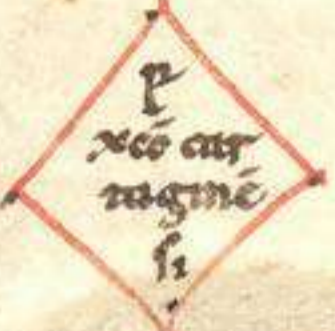 P
xcē car
taginē
si